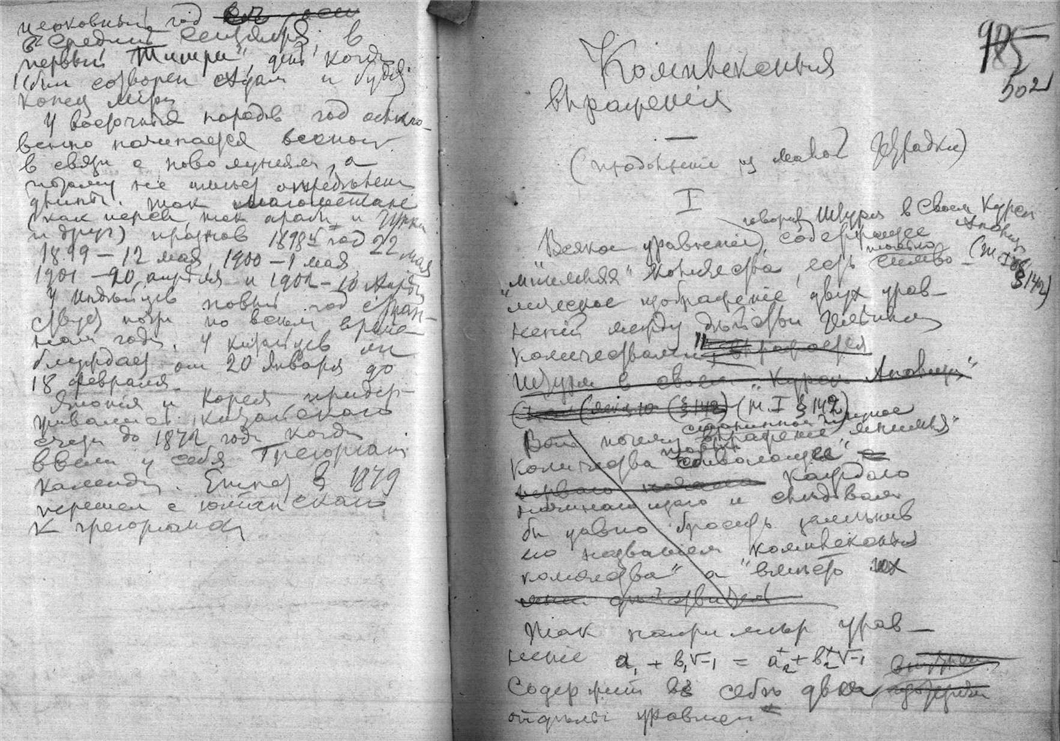 церковный год
в средине сентября, в
первый "Тишри", день, когда
был сотворен Адам и будет
конец міра
У восточных народов год обыкно-
венно начинается весною
в связи с новолунием, а
потому не имеет определенной
длины. Так магометане
(как персы так арабы и турки
и друг.) празднов 1898й год 22 мая
1899 – 12 мая, 1900 – 1 мая
1901 – 20 апреля и 1902 – 10 апреля
У индейцев новый год стран-
ствует почти по всем време-
нам года. У китайцев он
блуждает от 20 Января до
18 февраля.
Япония и Корея придер-
живались китайского
счета до 1872 года, когда
ввели у себя Грегориан
календ. Египет в 1879
перешел с юлианского
к грегориан
985
502
Комплексныя
выражения
(продолжение из малой тетрадки)
I
говорит Штурм в своем Курсе
Всякое уравнение, содержащее
"мнимыя" количества есть только символи- (т. I § 142)
ческое изображение двух урав-
нений между действительными
количествами"
Штурм в своем "Курсе Анализа"
(т. I § 142)
Вот почему выражение "мнимыя"
количества
каждого
начинающего и следовало
бы давно бросить заменив
его названием "комплексныя
количества" а вместо их
Так например урав-
нение a₁ + b₁√-1 = a₂ + b₂√-1
Содержит в себе два
отдельных уравнен